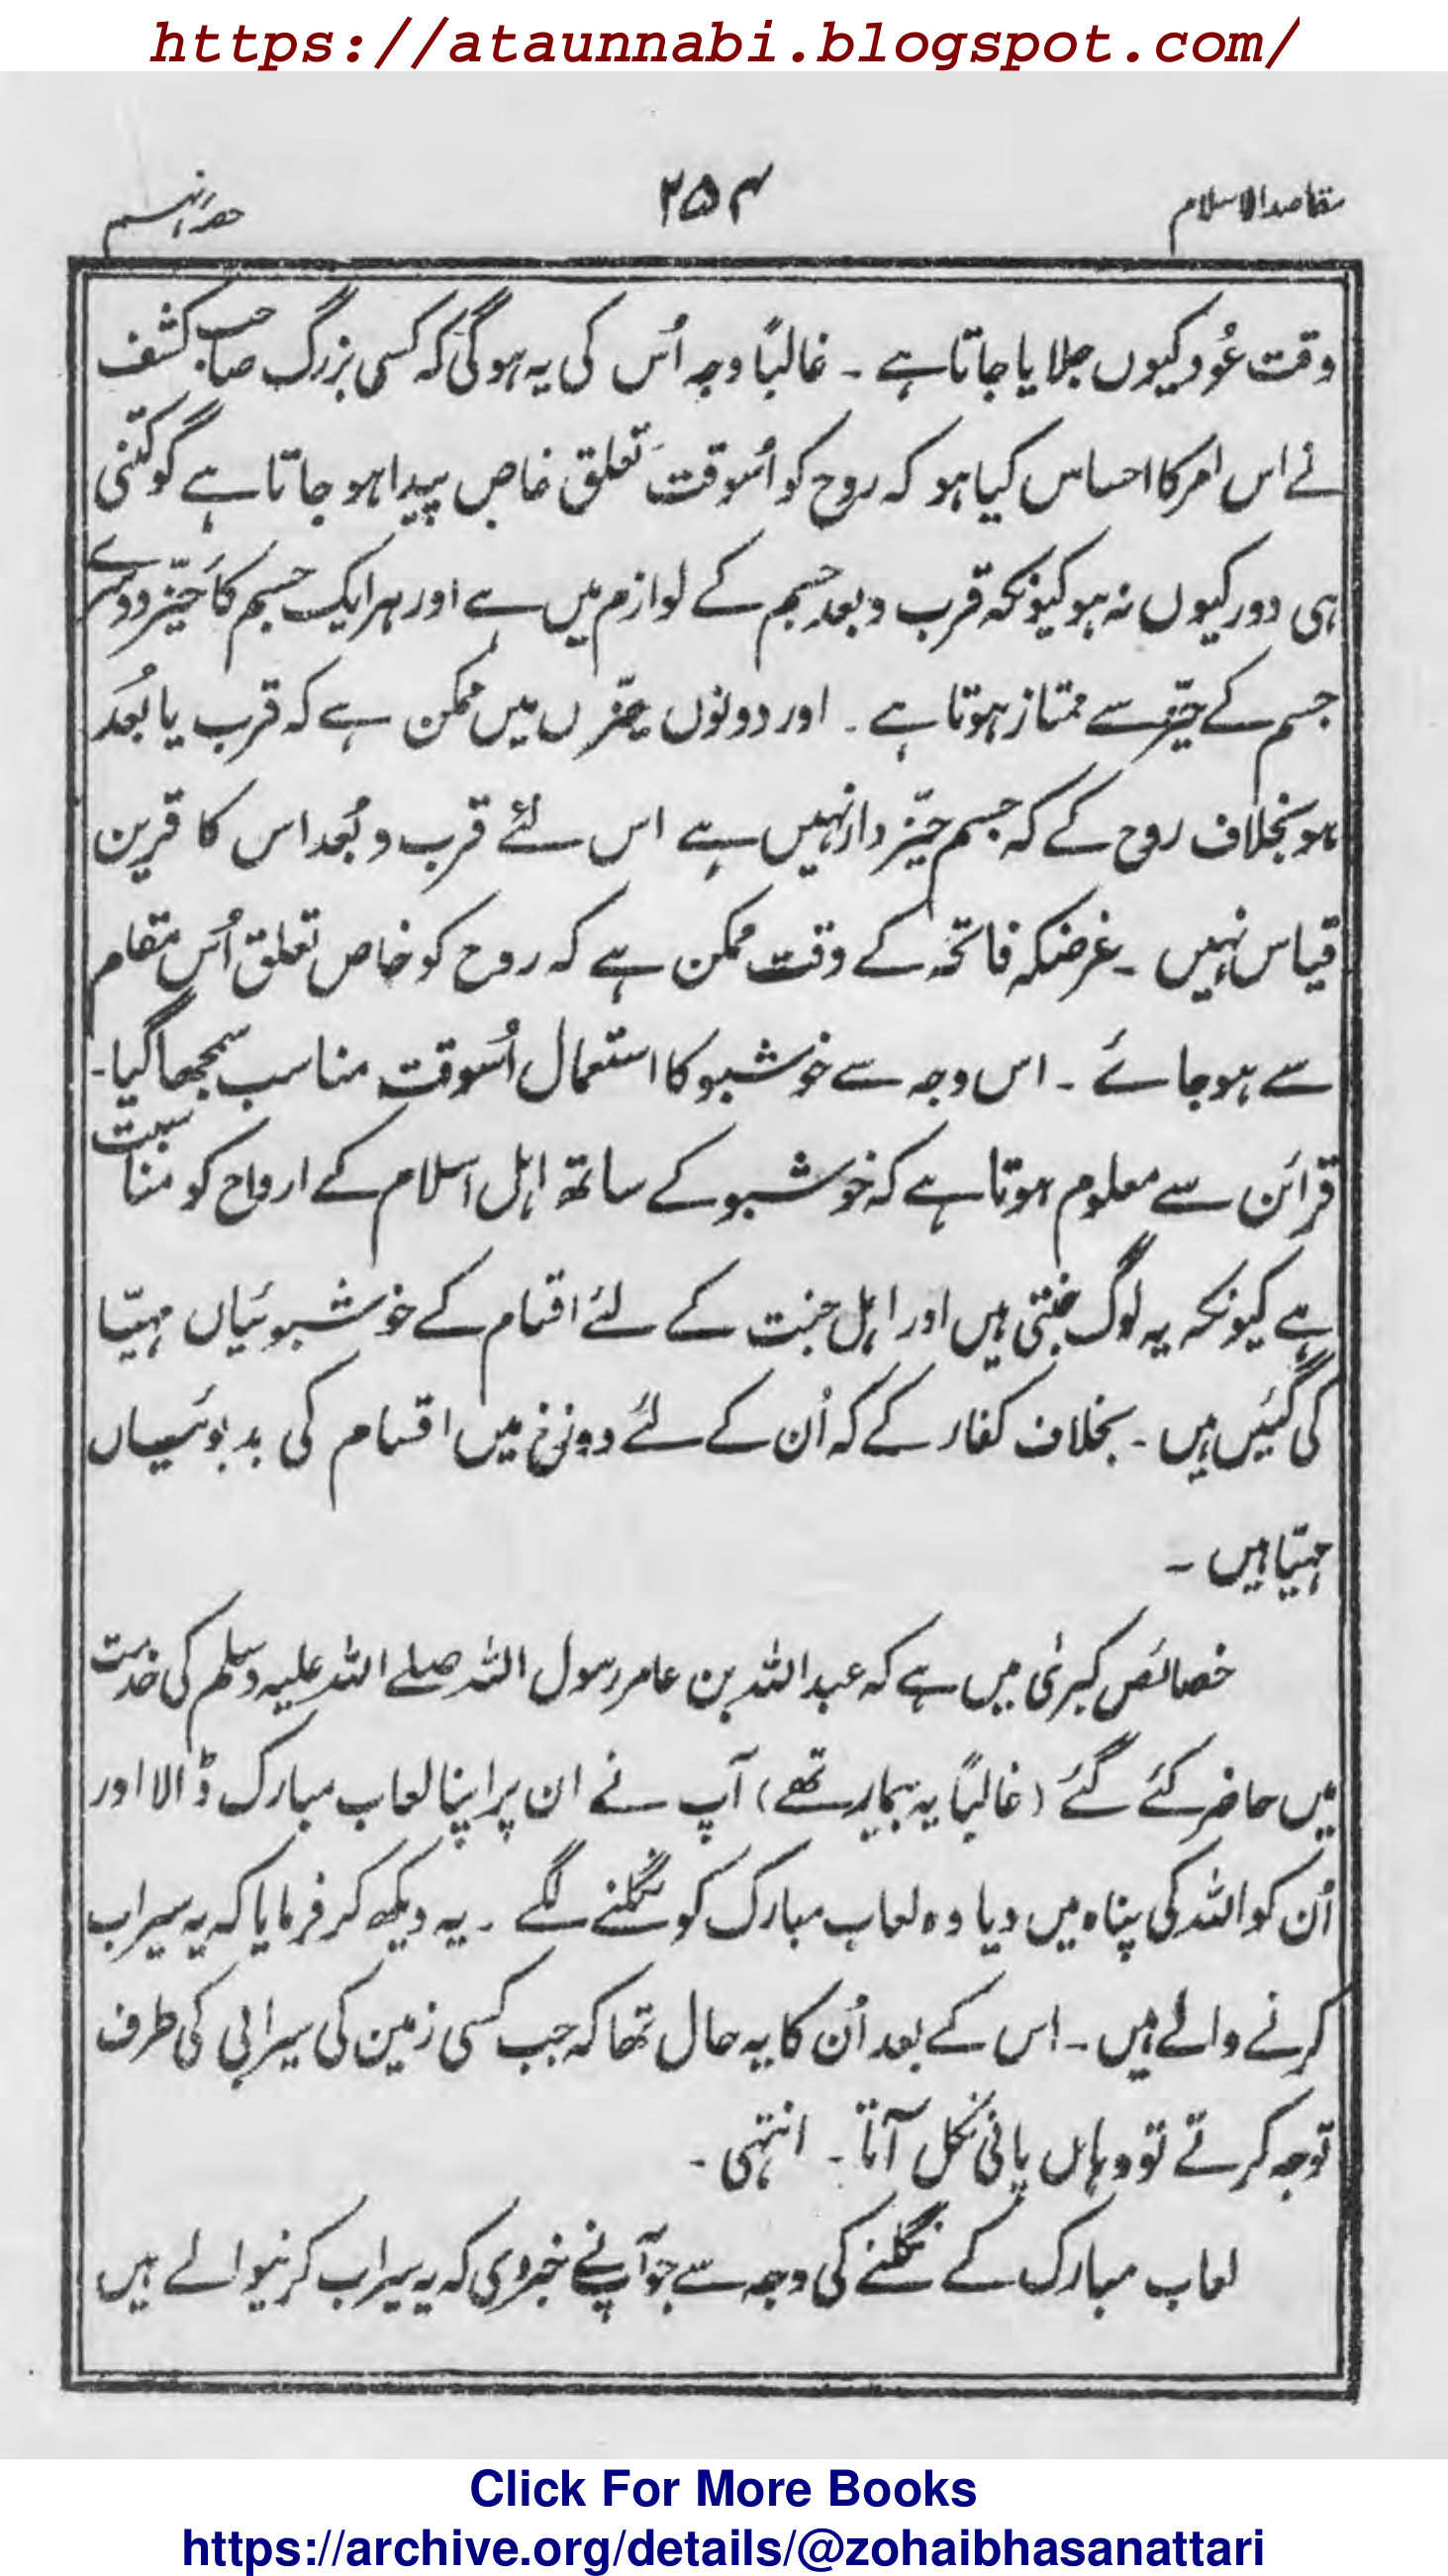 https://ataunnabi.blogspot.com/
مقاصد الاسلام
۲۵۴
حصہ نہم
وقت عُود کیوں جلایا جاتا ہے ۔ غالباً وجہ اُس کی یہ ہوگی کہ کسی بزرگ صاحب کشف
نے اس امر کا احساس کیا ہو کہ روح کو اُسوقت تعلق خاص پیدا ہو جاتا ہے گو کتنی
ہی دور کیوں نہ ہو کیونکہ قرب و بعد جسم کے لوازم میں ہے اور ہر ایک جسم کا حیّز دوسرے
جسم کے حیّز سے ممتاز ہوتا ہے ۔ اور دونوں حیّزوں میں ممکن ہے کہ قرب یا بُعد
ہو بخلاف روح کے کہ جسم حیّز دار نہیں ہے اس لئے قرب و بُعد اس کا قرین
قیاس نہیں ۔ غرضکہ فاتحہ کے وقت ممکن ہے کہ روح کو خاص تعلق اُس مقام
سے ہو جائے ۔ اس وجہ سے خوشبو کا استعمال اُسوقت مناسب سمجھا گیا ۔
قرائن سے معلوم ہوتا ہے کہ خوشبو کے ساتھ اہل اسلام کے ارواح کو مناسبت
ہے کیونکہ یہ لوگ جنتی ہیں اور اہل جنت کے لئے اقسام کے خوشبوئیاں مہیّا
کی گئیں ہیں ۔ بخلاف کفار کے کہ اُن کے لئے دوزخ میں اقسام کی بدبوئیاں
مہیّا ہیں ۔
خصائص کبریٰ میں ہے کہ عبداللہ بن عامر رسول اللہ صلے اللہ علیہ وسلم کی خدمت
میں حاضر کئے گئے (غالباً یہ بیمار تھے) آپ نے ان پر اپنا لعاب مبارک ڈالا اور
اُن کو اللہ کی پناہ میں دیا وہ لعاب مبارک کو نگلنے لگے ۔ یہ دیکھ کر فرمایا کہ یہ سیراب
کرنے والے ہیں ۔ اس کے بعد اُن کا یہ حال تھا کہ جب کسی زمین کی سیرابی کی طرف
توجہ کرتے تو وہاں پانی نکل آتا ۔ انتہی ۔
لعاب مبارک کے نگلنے کی وجہ سے جو آپنے خبر دی کہ یہ سیراب کرنیوالے ہیں
Click For More Books
https://archive.org/details/@zohaibhasanattari